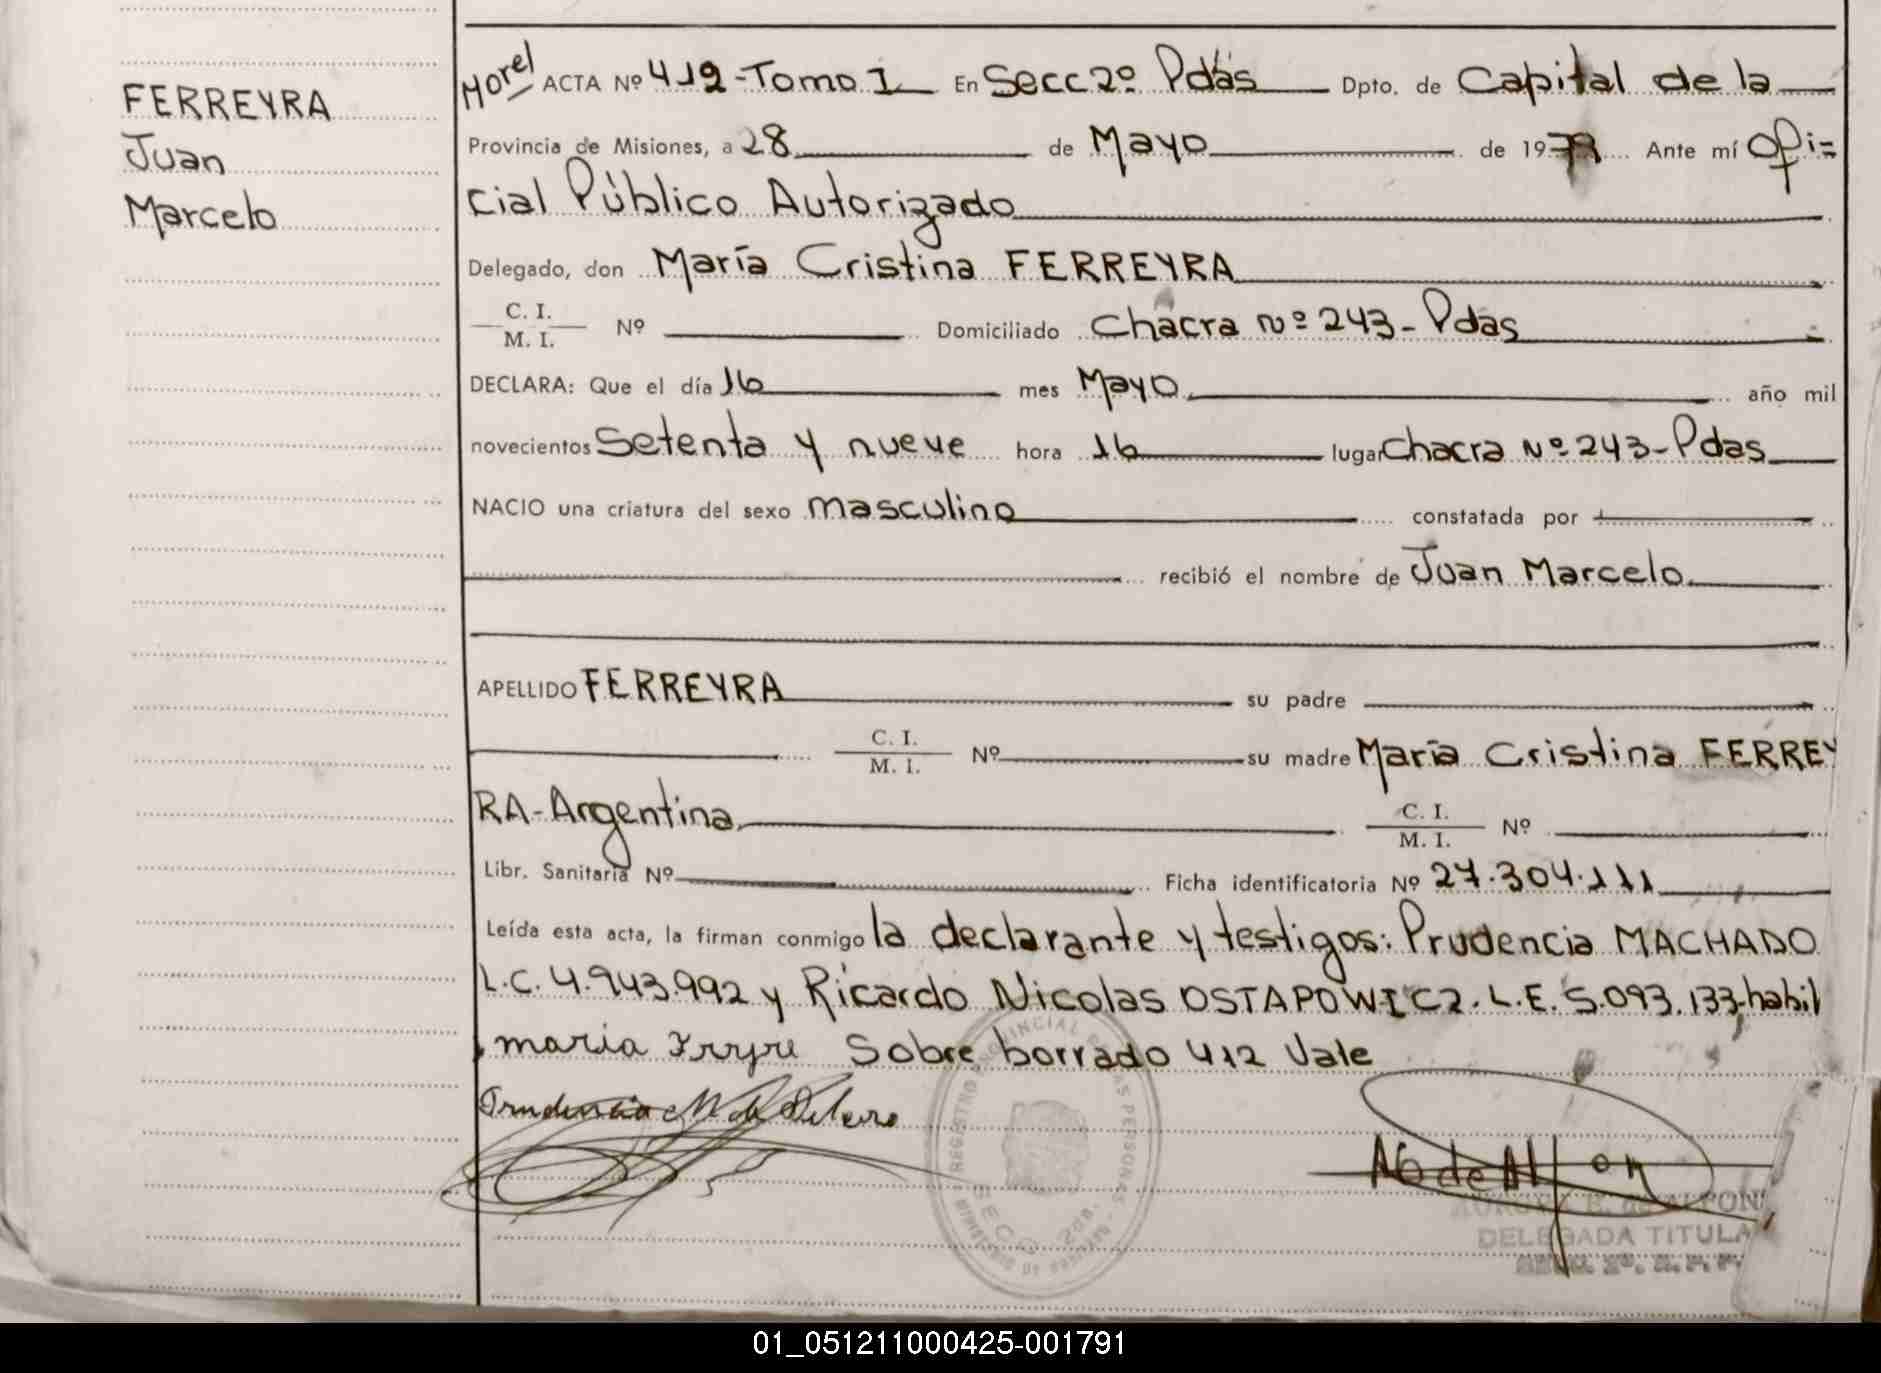 FERREYRA
Juan
Marcelo
Morel ACTA Nº 412-Tomo I En Secc 2º Pdas Dpto. de Capital de la
Provincia de Misiones, a 28 de Mayo de 1979 Ante mí Ofi=
cial Público Autorizado
Delegado, don María Cristina FERREYRA
C. I.
M. I. Nº Domiciliado Chacra Nº 243-Pdas
DECLARA: Que el día 16 mes Mayo año mil
novecientos Setenta y nueve hora 16 lugar Chacra Nº 243-Pdas
NACIO una criatura del sexo masculino constatada por
recibió el nombre de Juan Marcelo
APELLIDO FERREYRA su padre
C. I.
M. I. Nº su madre María Cristina FERREY
RA-Argentina C. I.
M. I. Nº
Libr. Sanitaria Nº Ficha identificatoria Nº 27.304.111
Leída esta acta, la firman conmigo la declarante y testigos: Prudencia MACHADO
L.C. 4.943.992 y Ricardo Nicolas OSTAPOWICZ. L.E. 5.093.133-habil
maria Sobre borrado 412 Vale
Prudencia M de
DELEGADA TITULA
01_051211000425-001791